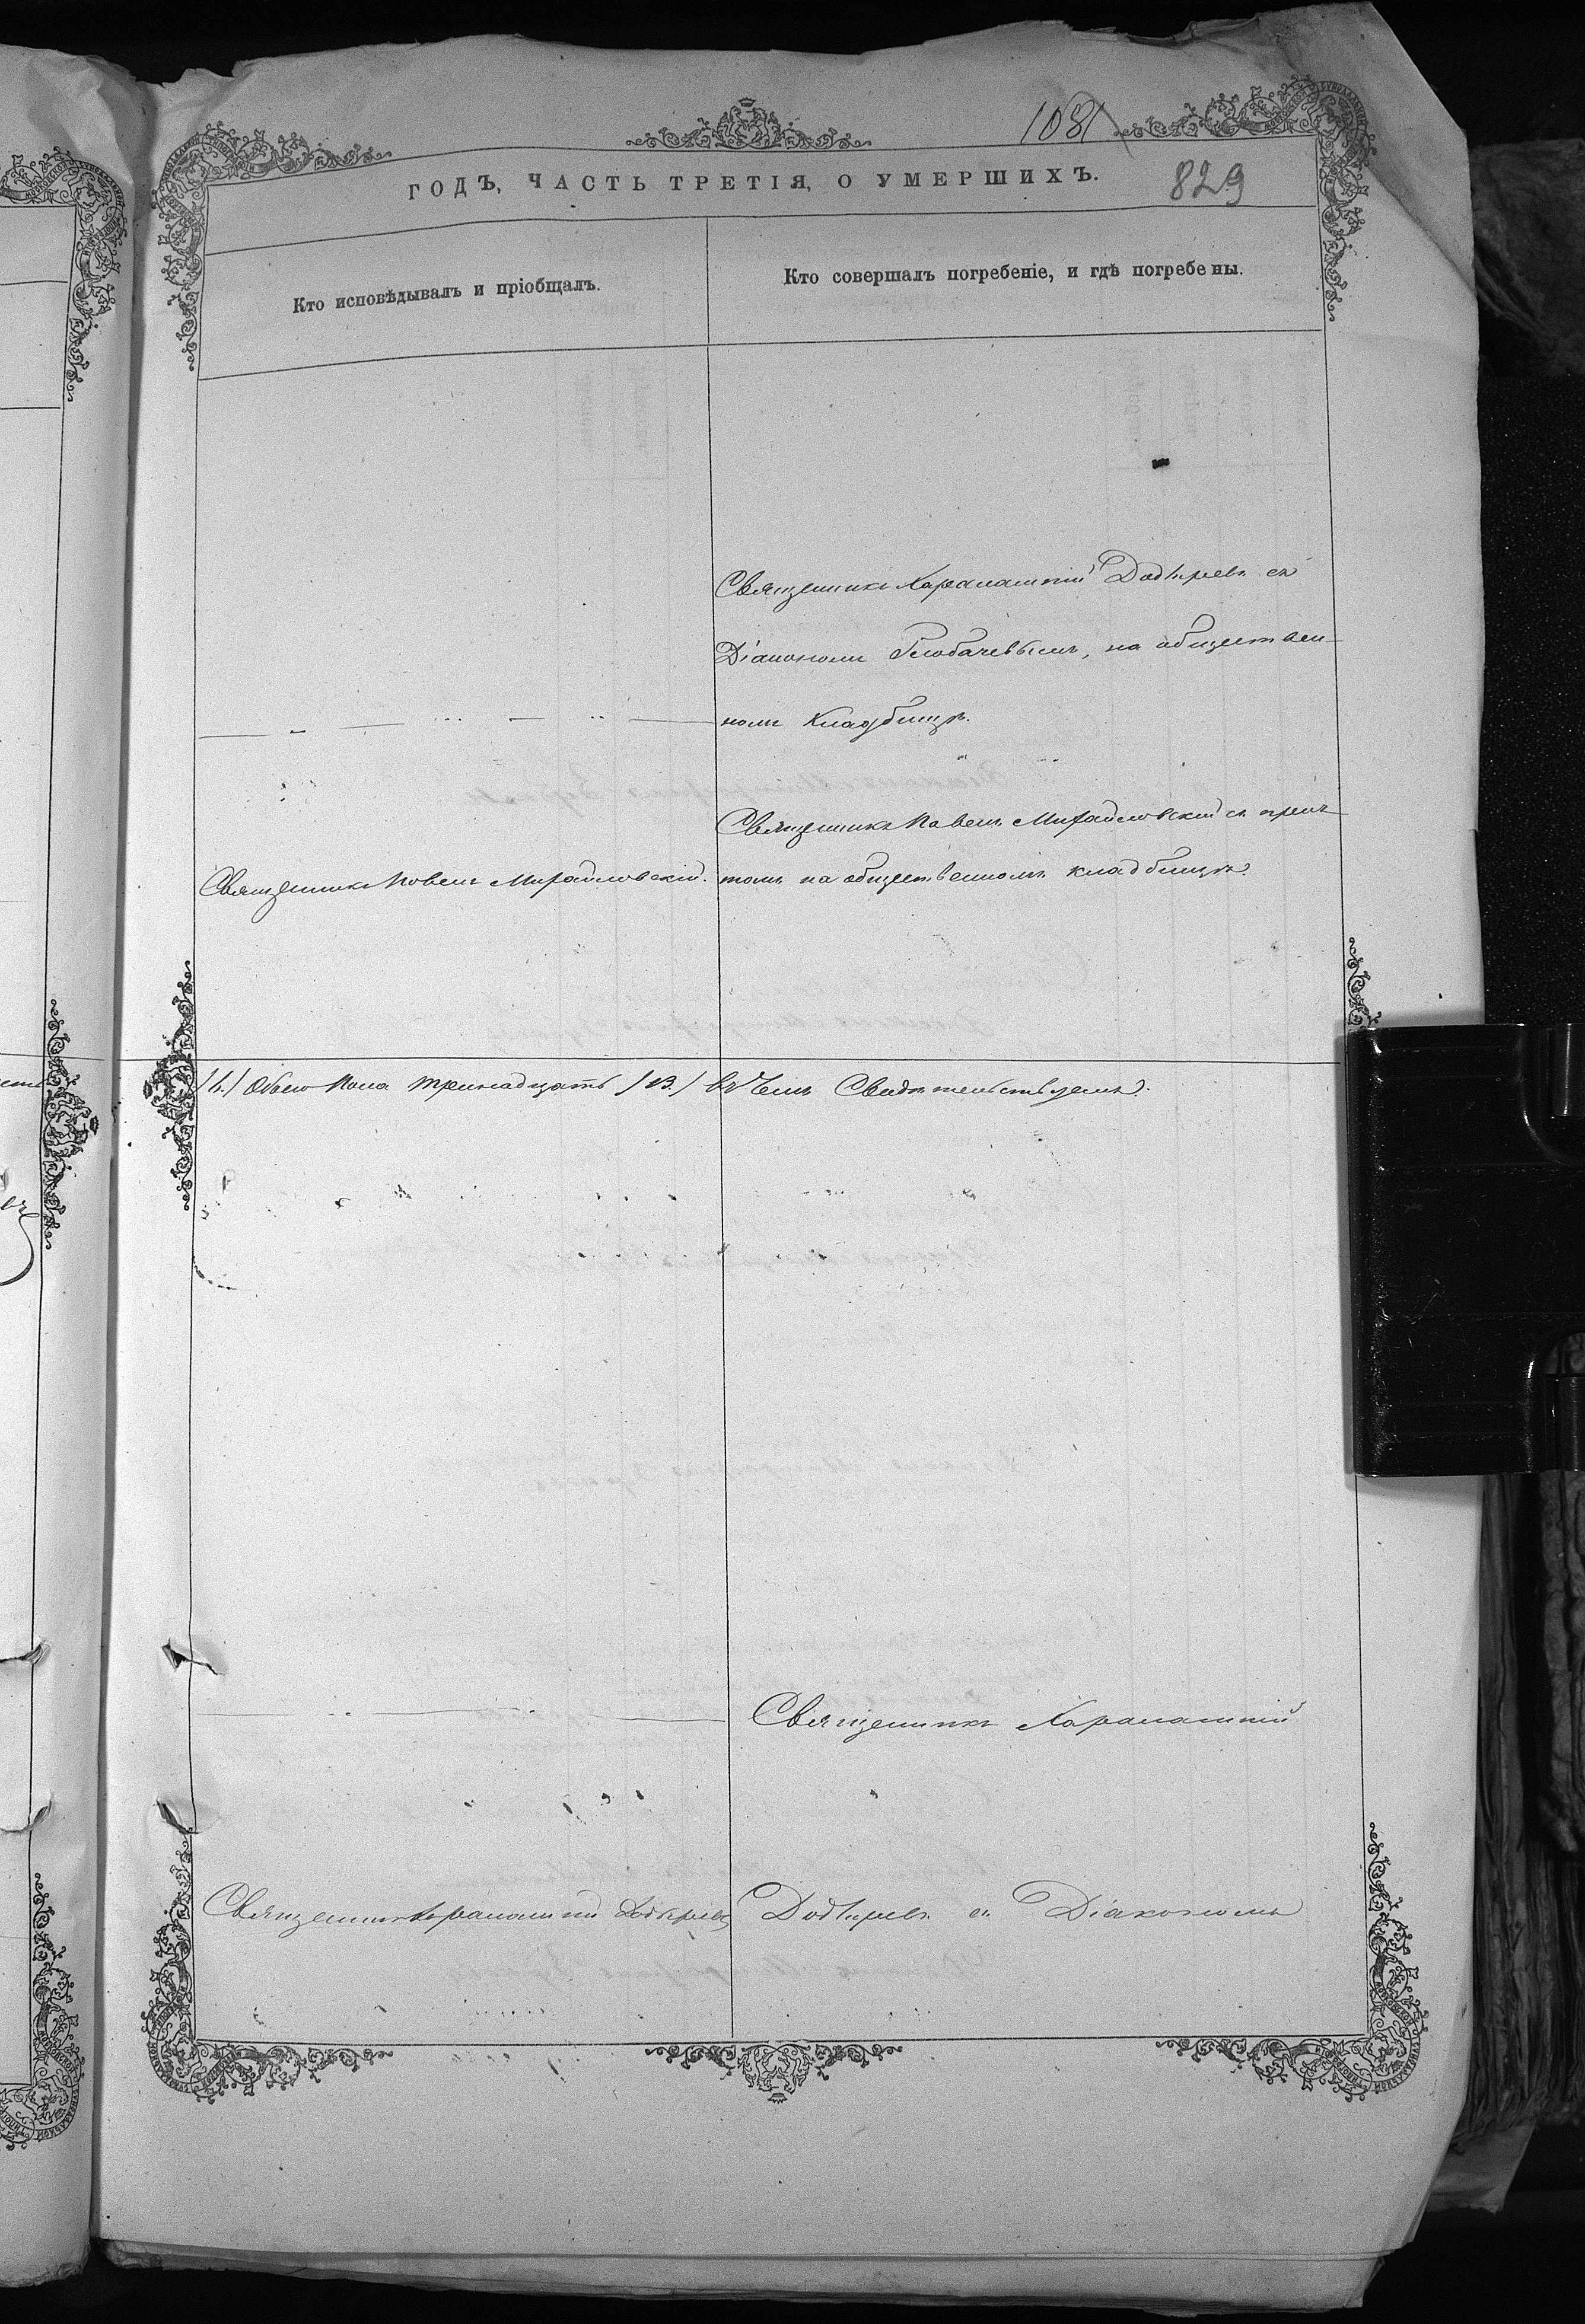 1081
ГОДЪ, ЧАСТЬ ТРЕТІЯ, О УМЕРШИХЪ.
829
Кто исповѣдывалъ и пріобщалъ.
Кто совершалъ погребеніе, и гдѣ погребены.
Священникъ Харалампій съ
Діакономъ на обществен-
номъ Кладбищѣ.
Священникъ Павелъ Михайловскій съ прич-
Священникъ Павелъ Михайловскій.
томъ на общественномъ кладбищѣ.
Обоего Пола тринадцать /13./ въ чемъ Свидѣтельствуемъ:
Священникъ Харалампій
Священникъ Харалампій
съ Діакономъ